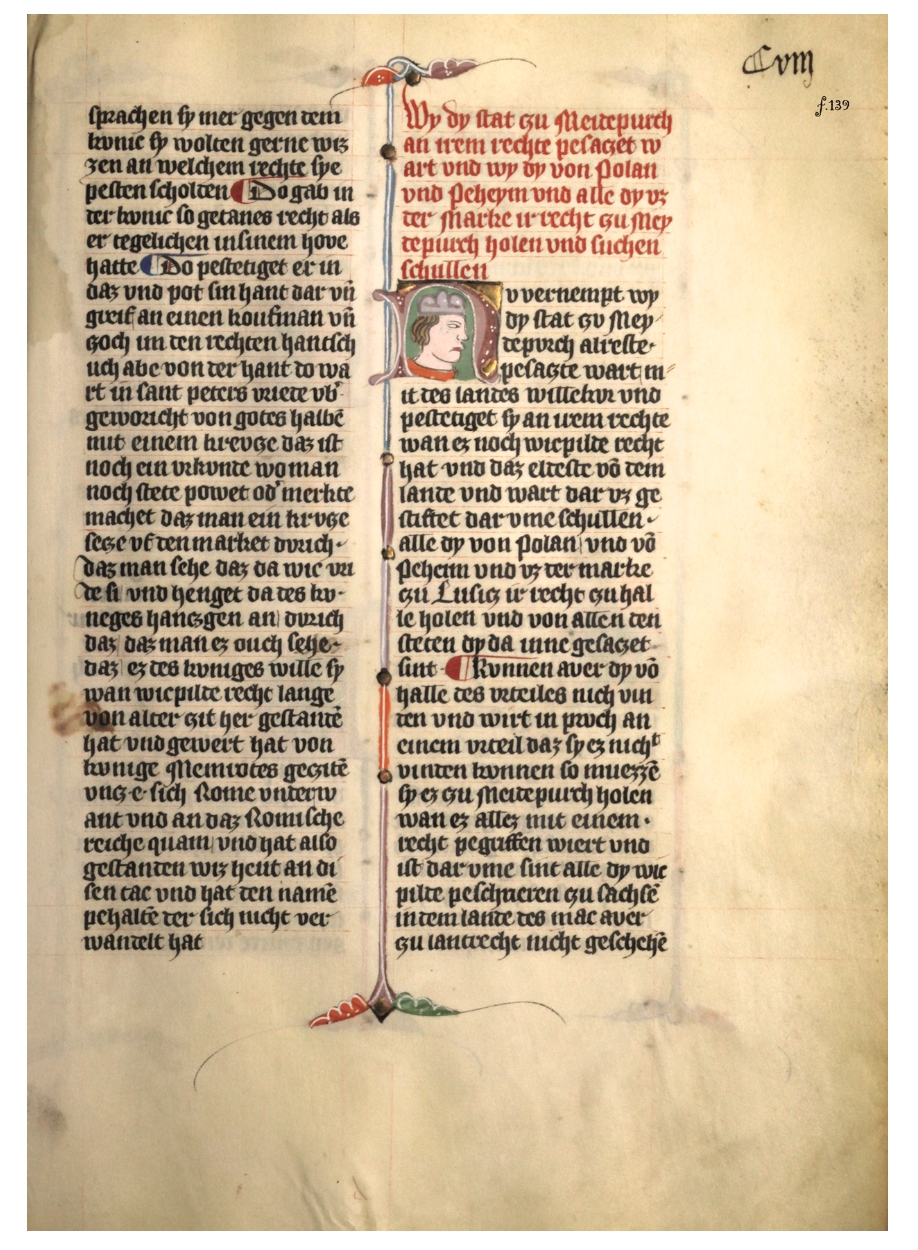 Cviij
f.139
sprachen sy mer gegen dem
kvnic sy wolten gerne wiz
zen an welchem rechte sye
pesten scholten Do gab in
der kvnic so getanes recht als
er tegelichen in sinem hove
hatte Do pestetiget er in
daz vnd pot sin hant dar vn̄
greif an einen koufman vn̄
zoch im den rechten hantsch
uch abe von der hant do wa
rt in sant peters vriede vb᾽
geworicht von gotes halbē
mit einem krevcze daz ist
noch ein vrkvnde wo man
noch stete powet od᾽ merkte
machet daz man ein krvze
secze vf den market dvrich·
daz man sehe daz da wic vri
de si vnd henget da des kv·
neges hanczgen an dvrich
daz daz man ez ouch sehe·
daz ez des kvniges wille sy
wan wicpilde recht lange
von alter zit her gestandē
hat vnd gewert hat von
kvnige Memrotes geczitē
vncz e sich Rome vnderw
ant vnd an daz Romische
reiche quam vnd hat also
gestanden wiz heut an di
sen tac vnd hat den namē
pehaltē der sich nicht ver
wandelt hat
Wy dy stat czu Meidepurch
an irem rechte pesaczet w
art vnd wy dy von Polan
vnd Peheym vnd alle dy vz
der Marke ir recht czu Mey
depurch holen vnd suchen
schullen
Nv vernempt wy
dy stat czv Mey
depvrch alreste·
pesaczte wart m
it des landes willekvr vnd
pestetiget sy an irem rechte
wan ez noch wicpilde recht
hat vnd daz eldeste vō dem
lande vnd wart dar vz ge
stiftet dar vme schullen·
alle dy von Polan vnd vō
Peheim vnd vz der marke
czu Lusicz ir recht czu hal
le holen vnd von allen den
steten dy da inne gesaczet
sint· Kvnnen aver dy vō
halle des vrteiles nich vin
den vnd wirt in prvch an
einem vrteil daz sy ez nicht
vinden kvnnen so muezzē
sy ez czu Meidepiurch holen
wan ez allez mit einem·
recht pegriffen wiert vnd
ist dar vme sint alle dy wic
pilde peschrieren czu sachsē
in dem lande des mac aver
czu lantrecht nicht geschehē